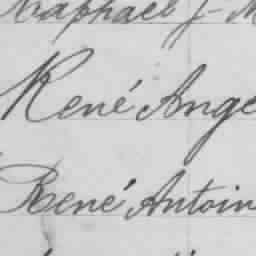 Raphael J-M
René Ange
René Antoin